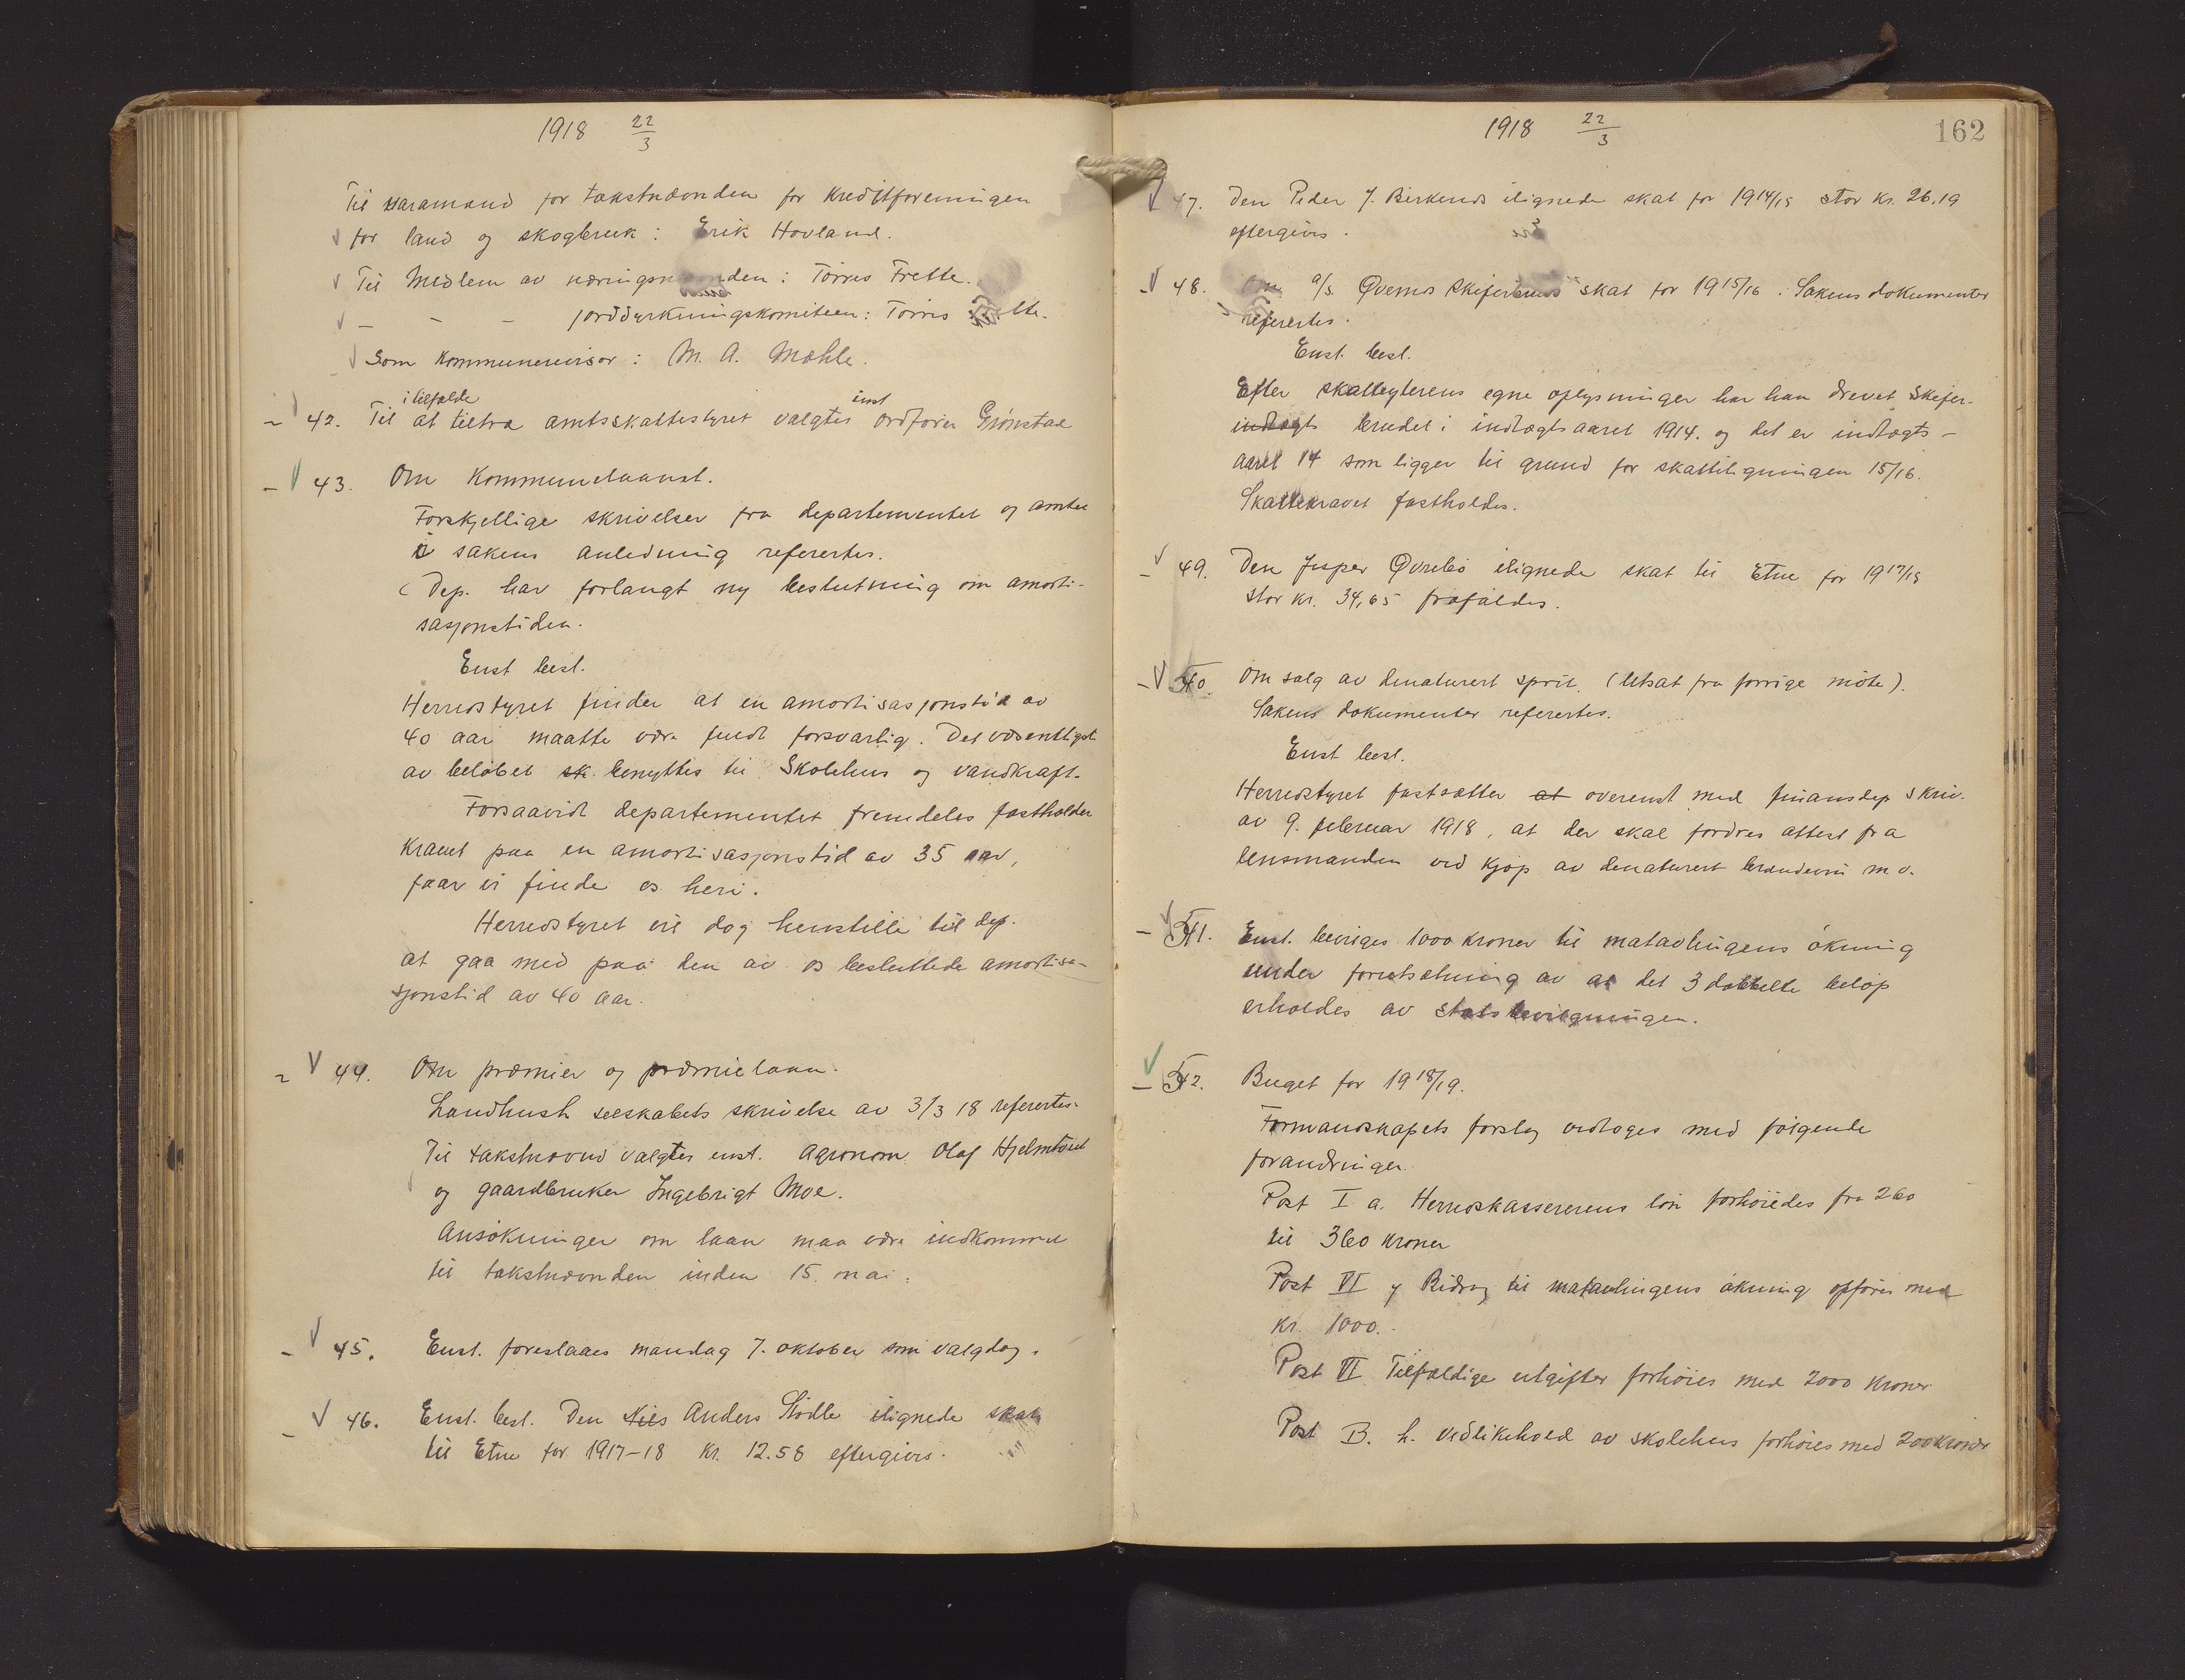 1918 22/3
Til varamand for takstnævnden for Kreditforeningen
for land og skogbruk: Erik Hovland.
Til Medlem av næringsnævnden: Tørres Frette.
— — — jorddyrkningskomiteen: Tørres Frette.
Som kommunerevisor: M. A. Mæhle.
i tilfælde enst
42. Til at tiltræ amtsskattestyret valgtes ordfører Grønstad
43. Om Kommunelaanet.
Forskjellige skrivelser fra departementet og amtet
i sakens anledning refereertes.
(Dep. har forlangt ny beslutning om amorti-
sasjonstiden.
Enst besl.
Herredstyret finder at en amortisasjonstid av
40 aar maatte være fundt forsvarlig. Det væsentligste
av beløbet sk benyttes til Skolehus og vandkraft.
Forsaavidt departementet fremdeles fastholder
kravet paa en amortisasjonstid av 35 aar,
faar vi finde os heri.
Herredstyret vil dog henstille til dep.
at gaa med paa den av os besluttede amortisa-
sjonstid av 40 aar.
44. Om præmier og præmielaan.
Landhush. selskabets skrivelse av 3/3 18 referertes.
Til takstnævnd valgtes enst. Agronom Olaf Hjelmtveit
og gaardbruker Ingebrigt Moe.
Ansøkninger om laan maa være indkommet
til takstnævnden inden 15. mai.
45. Enst. foreslaaes mandag 7. oktober som valgdag.
46. Enst. besl. Den Nils Anders Stødle ilignede skat
til Etne for 1917-18 kr. 12.58 eftergives.
1918 22/3
162
47. Den Peder J. Birkenes ilignede skat for 1914/15 stor kr. 26.19
eftergives.
48. Om A/S. Qvernes Skiferbruds skat for 1915/16. Sakens dokumenter
referertes.
Enst. besl.
Efter skatteyterens egne oplysninger har han drevet Skifer-
indtægts brudet i indtægtsaaret 1914. og det er indtægts-
aaret 14 som ligger til grund for skatteligningen 15/16.
Skattekravet fastholdes.
49. Den Jesper Øvrebø ilignede skat til Etne for 1917/18
stor kr. 34,65 frafaldes.
50. Om salg av denaturert sprit. (Utsat fra forrige møte).
Sakens dokumenter referertes.
Enst besl.
Herredstyret fastsætter at overenst med finansdep skriv.
av 9. februar 1918, at der skal fordres attest fra
lensmanden ved kjøp av denaturert brændevin m. v.
51. Enst. bevilges 1000 kroner til matavlingens økning
under forutsætning av at det 3 dobbelte beløp
erholdes av statsbevilgningen.
52. Buget for 1918/19.
Formandskapets forslag vedtoges med følgende
forandringer.
Post I a. Herredskassererens løn forhøiedes fra 260
til 360 kroner
Post VI y Bidrag til matavlingens økning opføres med
kr. 1000.
Post VI Tilfældige utgifter forhøies med 2000 kroner
Post B. h. Vedlikehold av skolehus forhøies med 200 kroner